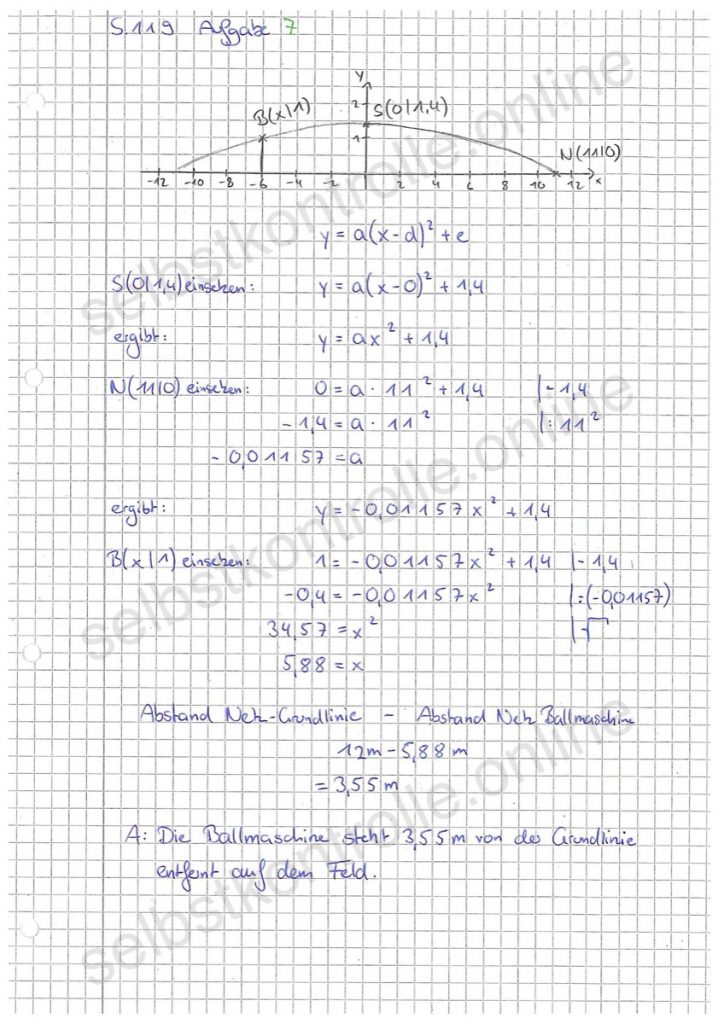 S.119 Aufgabe 7
y
2
B(x|1)
S(0|1,4)
1
N(11|0)
-12 -10 -8 -6 -4 -2 2 4 6 8 10 12 x
y = a(x-d)² + e
S(0|1,4) einsetzen: y = a(x-0)² + 1,4
ergibt: y = ax² + 1,4
N(11|0) einsetzen: 0 = a · 11² + 1,4 |-1,4
-1,4 = a · 11² |:11²
-0,01157 = a
ergibt: y = -0,01157x² + 1,4
B(x|1) einsetzen: 1 = -0,01157x² + 1,4 |-1,4
-0,4 = -0,01157x² |:(-0,01157)
34,57 = x² |√
5,88 = x
Abstand Netz-Grundlinie - Abstand Netz Ballmaschine
12m - 5,88m
= 3,55m
A: Die Ballmaschine steht 3,55m von der Grundlinie
entfernt auf dem Feld.
selbstkontrolle.online
selbstkontrolle.online
selbstkontrolle.online